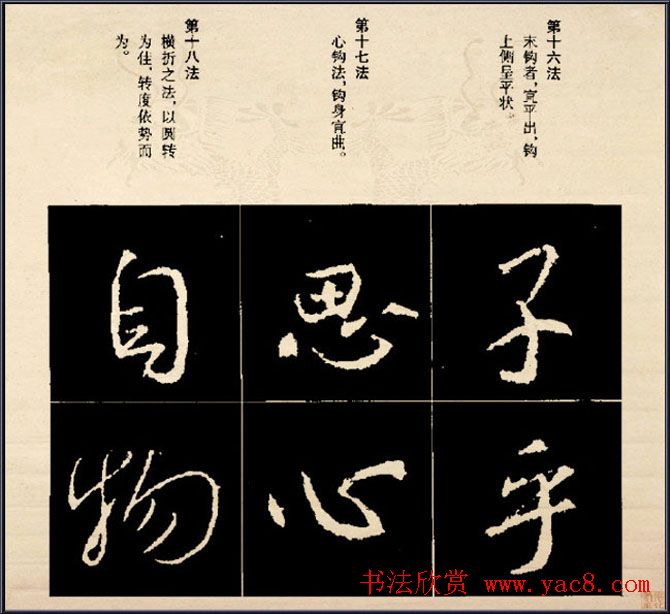 第十六法
末钩者，宜平出，钩
上侧呈平状。
第十七法
心钩法，钩身宜曲。
第十八法
横折之法，以圆转
为佳，转度依势而
为。
子
乎
思
心
自
物
书法欣赏 www.yac8.com